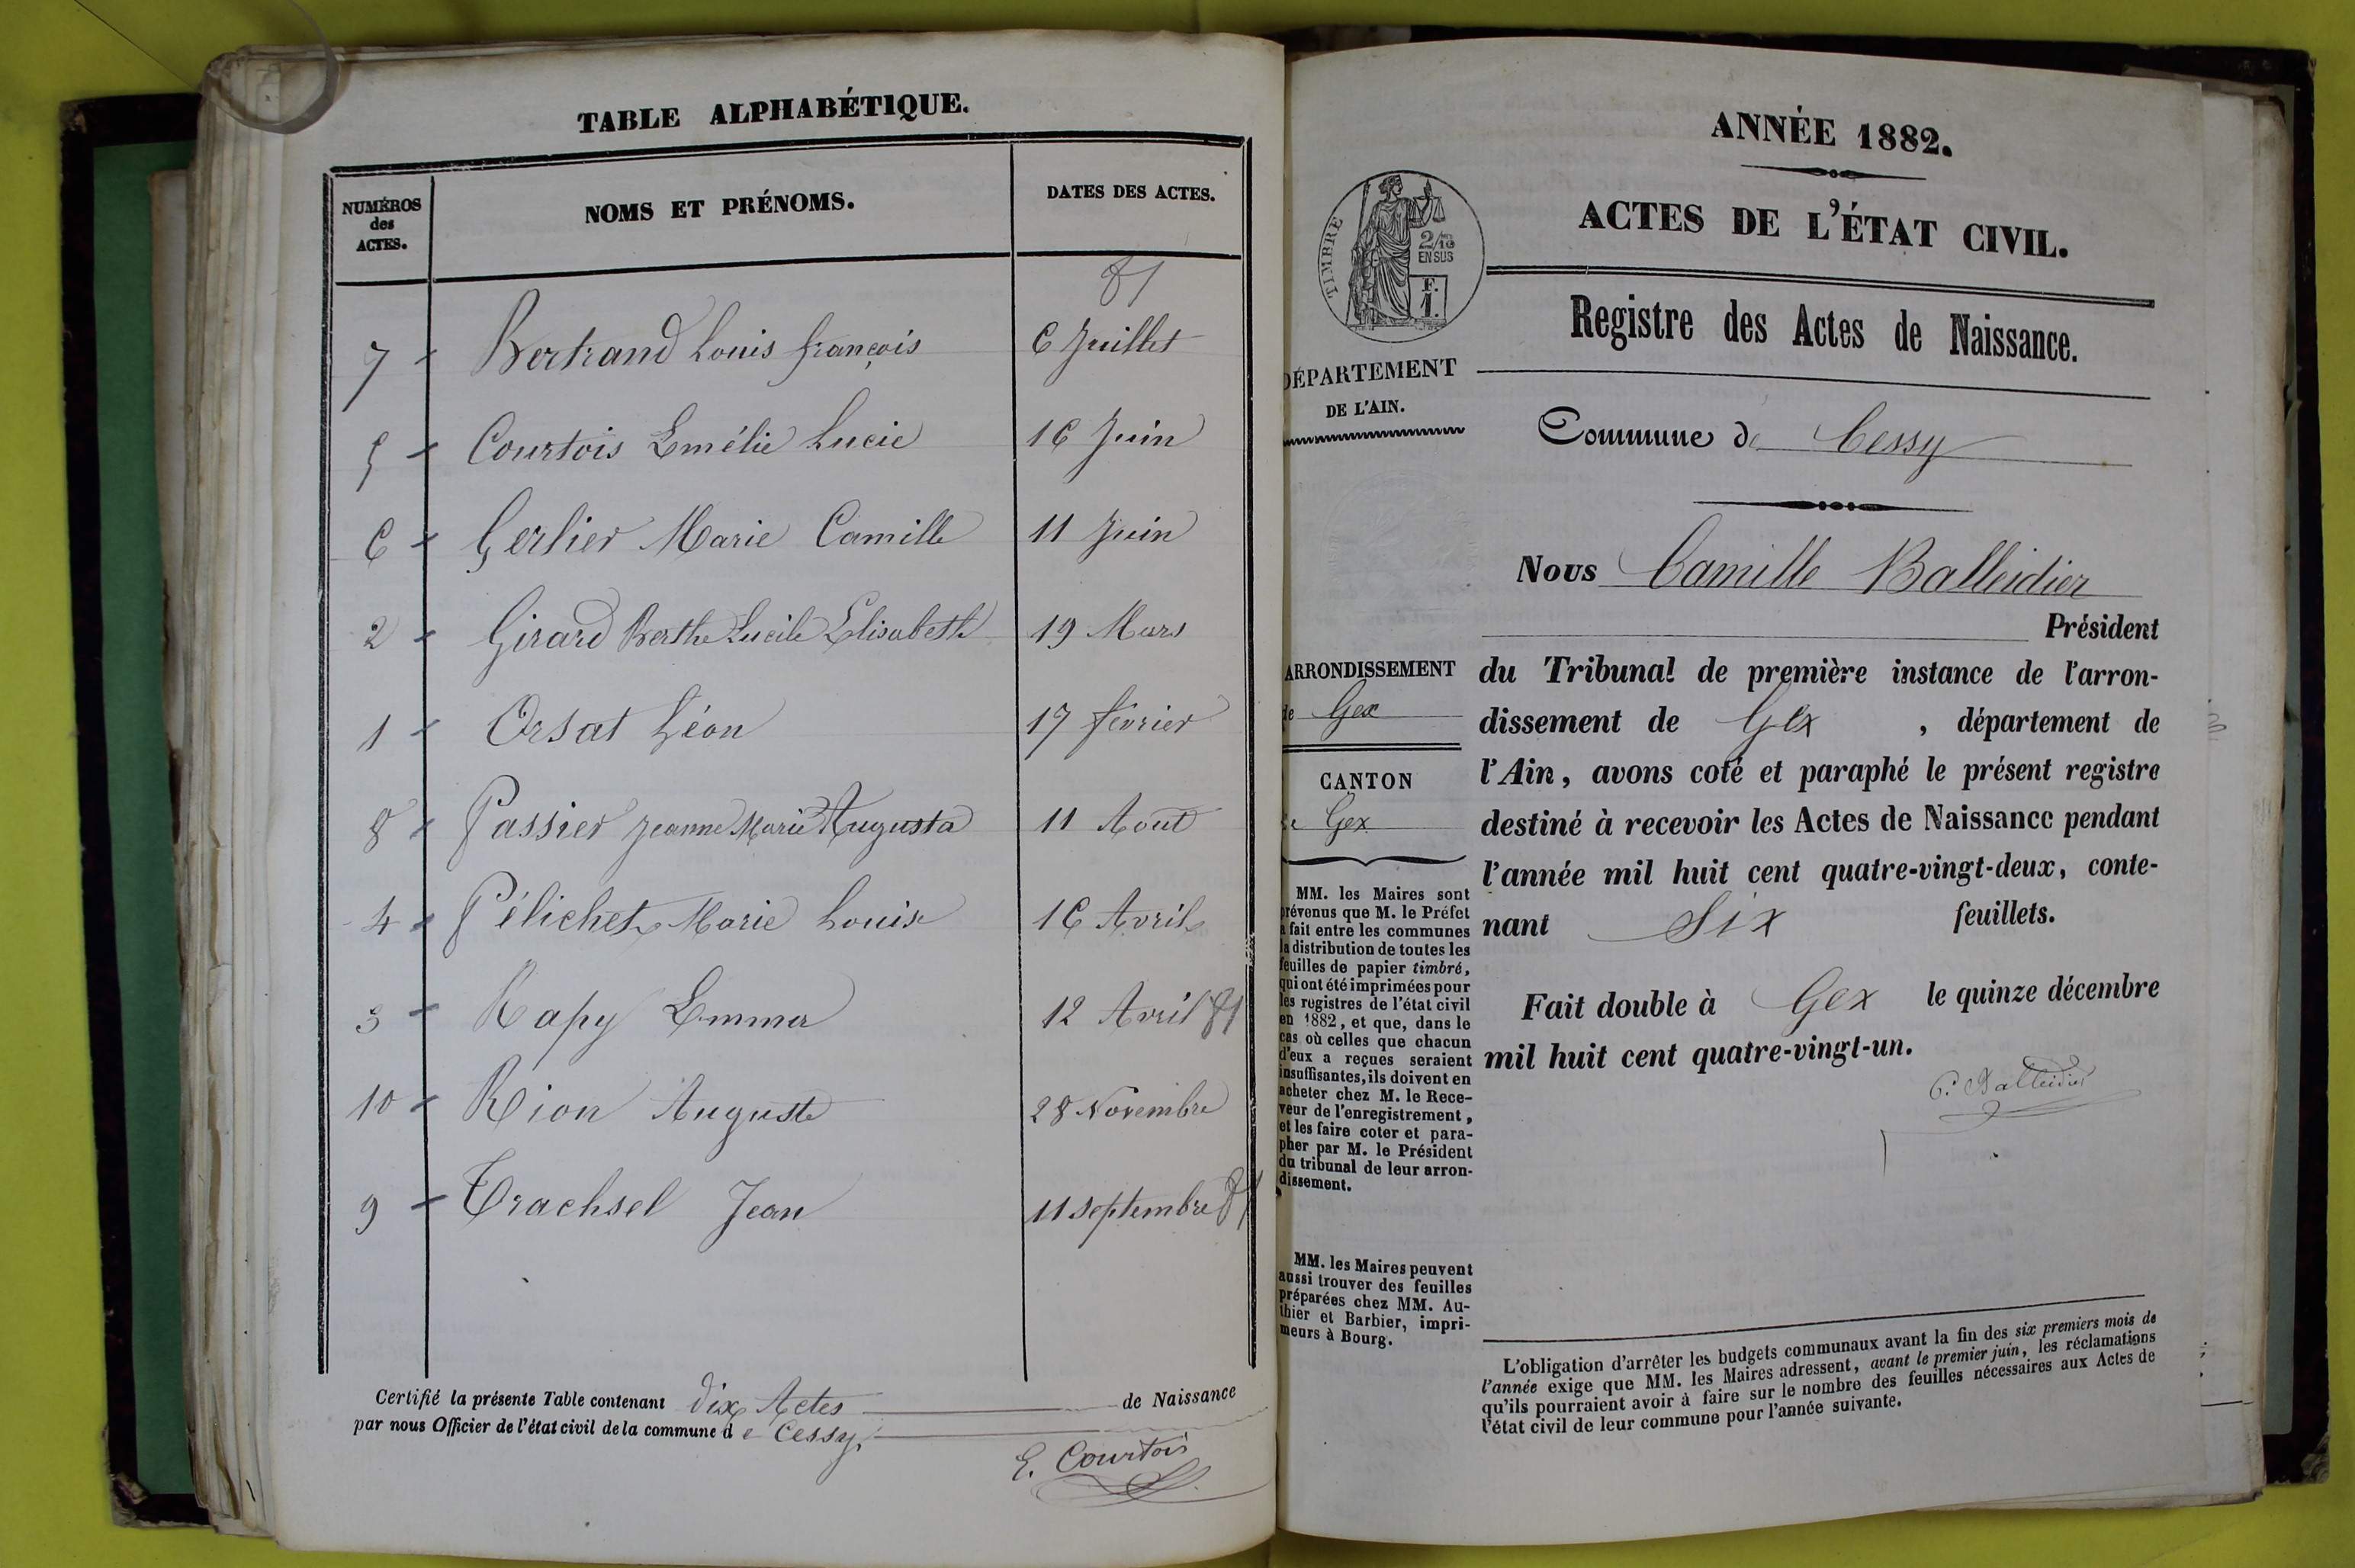 TABLE ALPHABÉTIQUE.
NUMÉROS
des
ACTES.
NOMS ET PRÉNOMS.
DATES DES ACTES.
81
7 Bertrand Louis françois 6 Juillet
5 Courtois Emélie Lucie 16 Juin
6 Gerlier Marie Camille 11 Juin
2 Girard Berthe Lucile Elisabeth 19 Mars
1 Orsat Léon 17 février
8 Passier Jeanne Marie Augusta 11 Août
4 Pélichet Marie Louise 16 Avril
3 Rapy Emma 12 Avril 81
10 Rion Auguste 28 Novembre
9 Trachsel Jean 11 septembre 81
Certifié la présente Table contenant dix Actes de Naissance
par nous Officier de l'état civil de la commune de Cessy.
E. Courtois
ANNÉE 1882.
ACTES DE L'ÉTAT CIVIL.
TIMBRE
2/10
EN SUS
F.
1.
Registre des Actes de Naissance.
DÉPARTEMENT
DE L'AIN.
Commune de Cessy
Nous Camille Balleidier
Président
du Tribunal de première instance de l'arron-
dissement de Gex, département de
l'Ain, avons coté et paraphé le présent registre
destiné à recevoir les Actes de Naissance pendant
l'année mil huit cent quatre-vingt-deux, conte-
nant Six feuillets.
Fait double à Gex le quinze décembre
mil huit cent quatre-vingt-un.
C. Balleidier
ARRONDISSEMENT
de Gex
CANTON
de Gex
MM. les Maires sont
prévenus que M. le Préfet
a fait entre les communes
la distribution de toutes les
feuilles de papier timbré,
qui ont été imprimées pour
les registres de l'état civil
en 1882, et que, dans le
cas où celles que chacun
d'eux a reçues seraient
insuffisantes, ils doivent en
acheter chez M. le Rece-
veur de l'enregistrement,
et les faire coter et para-
pher par M. le Président
du tribunal de leur arron-
dissement.
MM. les Maires peuvent
aussi trouver des feuilles
préparées chez MM. Au-
thier et Barbier, impri-
meurs à Bourg.
L'obligation d'arrêter les budgets communaux avant la fin des six premiers mois de
l'année exige que MM. les Maires adressent, avant le premier juin, les réclamations
qu'ils pourraient avoir à faire sur le nombre des feuilles nécessaires aux Actes de
l'état civil de leur commune pour l'année suivante.